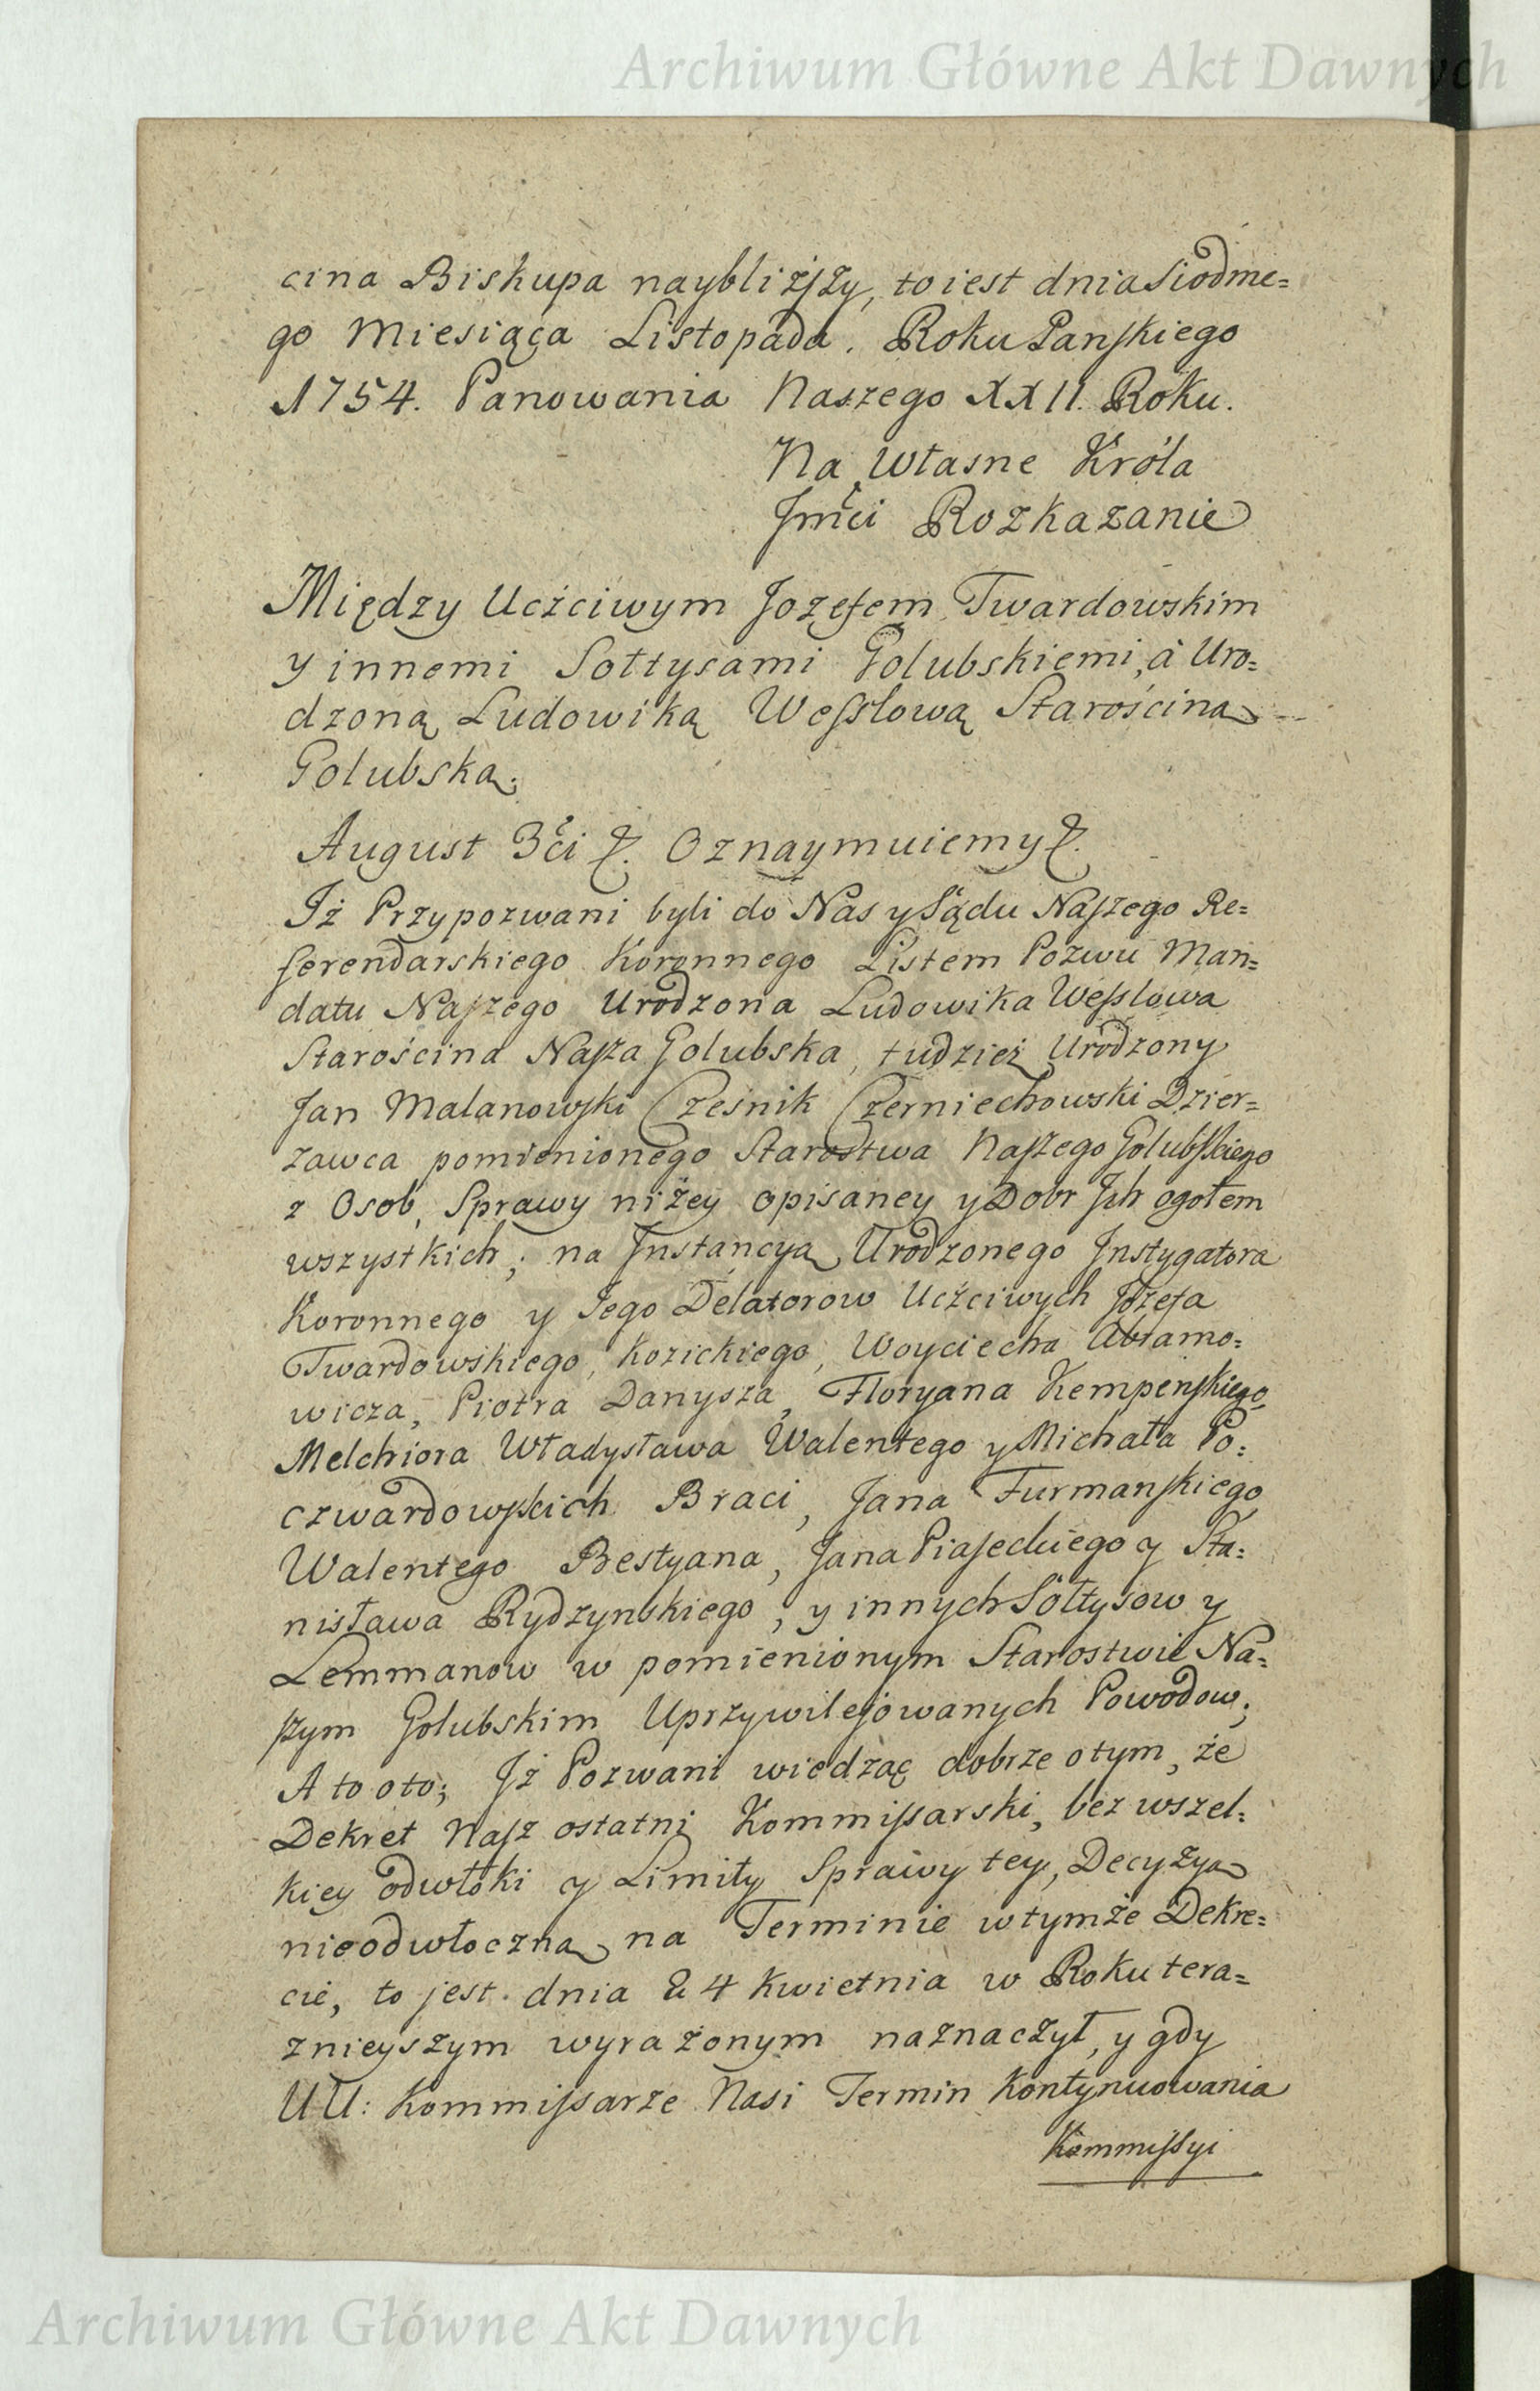 Archiwum Główne Akt Dawnych
cina Biskupa naybliżſzy, to iest dnia Siodme=
go Miesiąca Listopada. Roku Panſkiego
1754. Panowania Naszego XXII. Roku.
Na własne Króla
Jmći Rozkazanie
Między Uczciwym Jozefem Twardowskim
y innemi Sołtysami Golubskiemi, à Uro=
dzoną Ludowiką Weſslową Starościną
Golubską.
August 3ći &. Oznaymuiemy &.
Iż Przypozwani byli do Nas y Sądu Naſzego Re=
ferendarskiego Koronnego Listem Pozwu Man=
datu Naſzego Urodzona Ludowika Weſslowa
Starościna Naſza Golubska, tudzież Urodzony
Jan Malanowſki Cześnik Czerniechowski Dzier=
zawca pomienionego Starostwa Naſzego Golubſkiego
z Osob, Sprawy niżey opisaney y Dobr Jch ogołem
wszystkich; na Jnstancyą Urodzonego Jnstygatora
Koronnego y Jego Delatorow Uczciwych Józefa
Twardowskiego, Kozickiego, Woyciecha Abramo=
wicza, Piotra Danysza, Floryana Kempenſkiego,
Melchiora Władysława Walentego y Michała Po=
czwardowſkich Braci, Jana Furmanſkiego
Walentego Bestyana, Jana Piaſeckiego y Sta=
nisława Rydzynskiego, y innych Sołtysow y
Lemmanow w pomienionym Starostwie Na=
ſzym Golubskim Uprzywilejowanych Powodow;
A to oto; Jż Pozwani wiedząc dobrze o tym, że
Dekret Naſz ostatni Kommiſsarski, bez wszel=
kiey odwłoki y Limity Sprawy tey, Decyzyą
nieodwłoczną na Terminie w tymże Dekre=
cie, to jest dnia 24 Kwietnia w Roku tera=
znieyszym wyrażonym naznaczył, y gdy
UU: Kommiſsarze Nasi Termin Kontynuowania
Kommiſsyi
Archiwum Główne Akt Dawnych